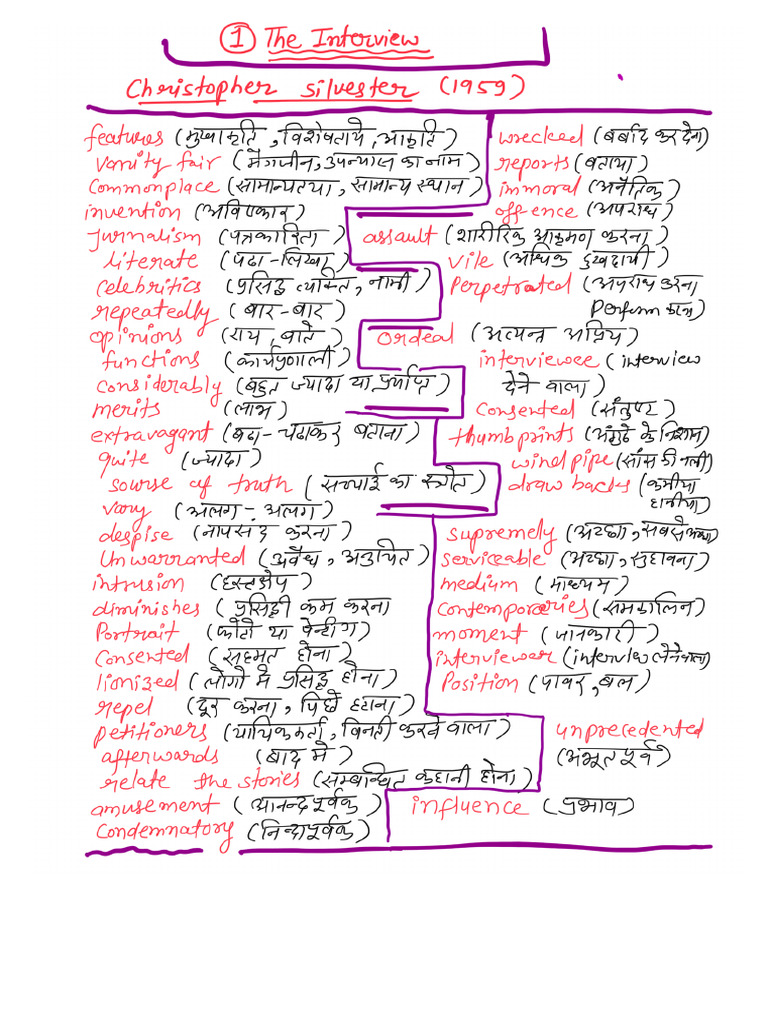 ① The Interview
Christopher Silvester (1959)
features (मुखाकृति, विशेषताये, आकृति)
Vanity fair (मैगजीन, उपन्यास का नाम)
Commonplace (सामान्यतया, सामान्य स्थान)
invention (अविष्कार)
Jurnalism (पत्रकारिता)
literate (पढा-लिखा)
Celebritics (प्रसिद्ध व्यक्ति, नामी)
repeatedly (बार-बार)
opinions (राय, बाते)
functions (कार्यप्रणाली)
considerably (बहुत ज्यादा या पर्याप्त)
merits (लाभ)
extravagant (बढा-चढाकर बताना)
quite (ज्यादा)
sourse of truth (सच्चाई का स्त्रोत)
vary (अलग-अलग)
despise (नापसंद करना)
Unwarranted (अवैध, अनुचित)
intrusion (हस्तक्षेप)
diminishes (प्रसिद्धी कम करना
Portrait (फोटो या पेन्टींग)
Consented (सहमत होना)
lionized (लोगो मे प्रसिद्ध होना)
repel (दूर करना, पिछे हटाना)
petitioners (याचिककर्ता, विनती करने वाला)
afterwards (बाद मे)
relate the stories (सम्बान्धित कहानी होना)
amusement (आनन्दपूर्वक)
Condemnatory (निन्दापूर्वक)
wrecked (बर्बाद कर देना)
reports (बताया)
immoral (अनैतिक)
offence (अपराध)
assault (शारीरिक आक्रमण करना)
Vile (अधिक दुखदायी)
Perpetrated (अपराध करना
Perform करना)
Ordeal (अत्यन्त अप्रिय)
interviewee (interview
देने वाला)
Consented (संतुष्ट)
thumbprints (अंगुठे के निशान)
windpipe (सांस की नली)
draw backs (कमीया
हानीया)
Supremely (अच्छा, सबसे अच्छा)
serviceable (अच्छा, सुहावना)
medium (माध्यम)
Contemporaries (समकालिन)
moment (जानकारी)
interviewer (interview लेने वाला)
Position (पावर, बल)
unprecedented
(अभूतपूर्व)
influence (प्रभाव)